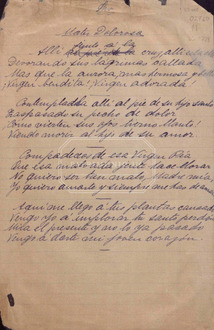 Mater Dolorosa
Allí la cruz, allí
Devorando sus lágrimas callada
Mas que la aurora, mas hermosa
Virgen bendita! Virgen adorada!
Contempladla allí al pie de su hijo santo
Traspasado su pecho de dolor
Como vierten sus ojos tierno llanto
Viendo morir al hijo de su amor
Compadeceos de esa Virgen Pía
que esa gente hace llorar
No quiero ser tan malo, Madre mía
Yo quiero amarte y siempre
Aquí me llego a tus plantas cansado
Vengo yo a implorar tu santo perdón
Mira el presente y no lo ya pasado
Vengo a darte mi joven corazón.